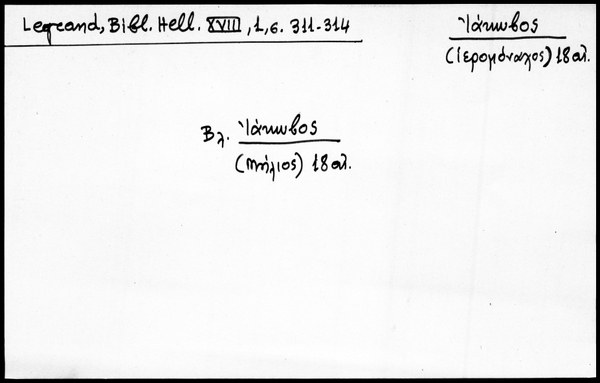 Legrand, Bibl. Hell. XVIII, 1, σ. 311-314
Ἰάκωβος
(Ἱερομόναχος) 18 αἰ.
Βλ. Ἰάκωβος
(Μήλιος) 18 αἰ.